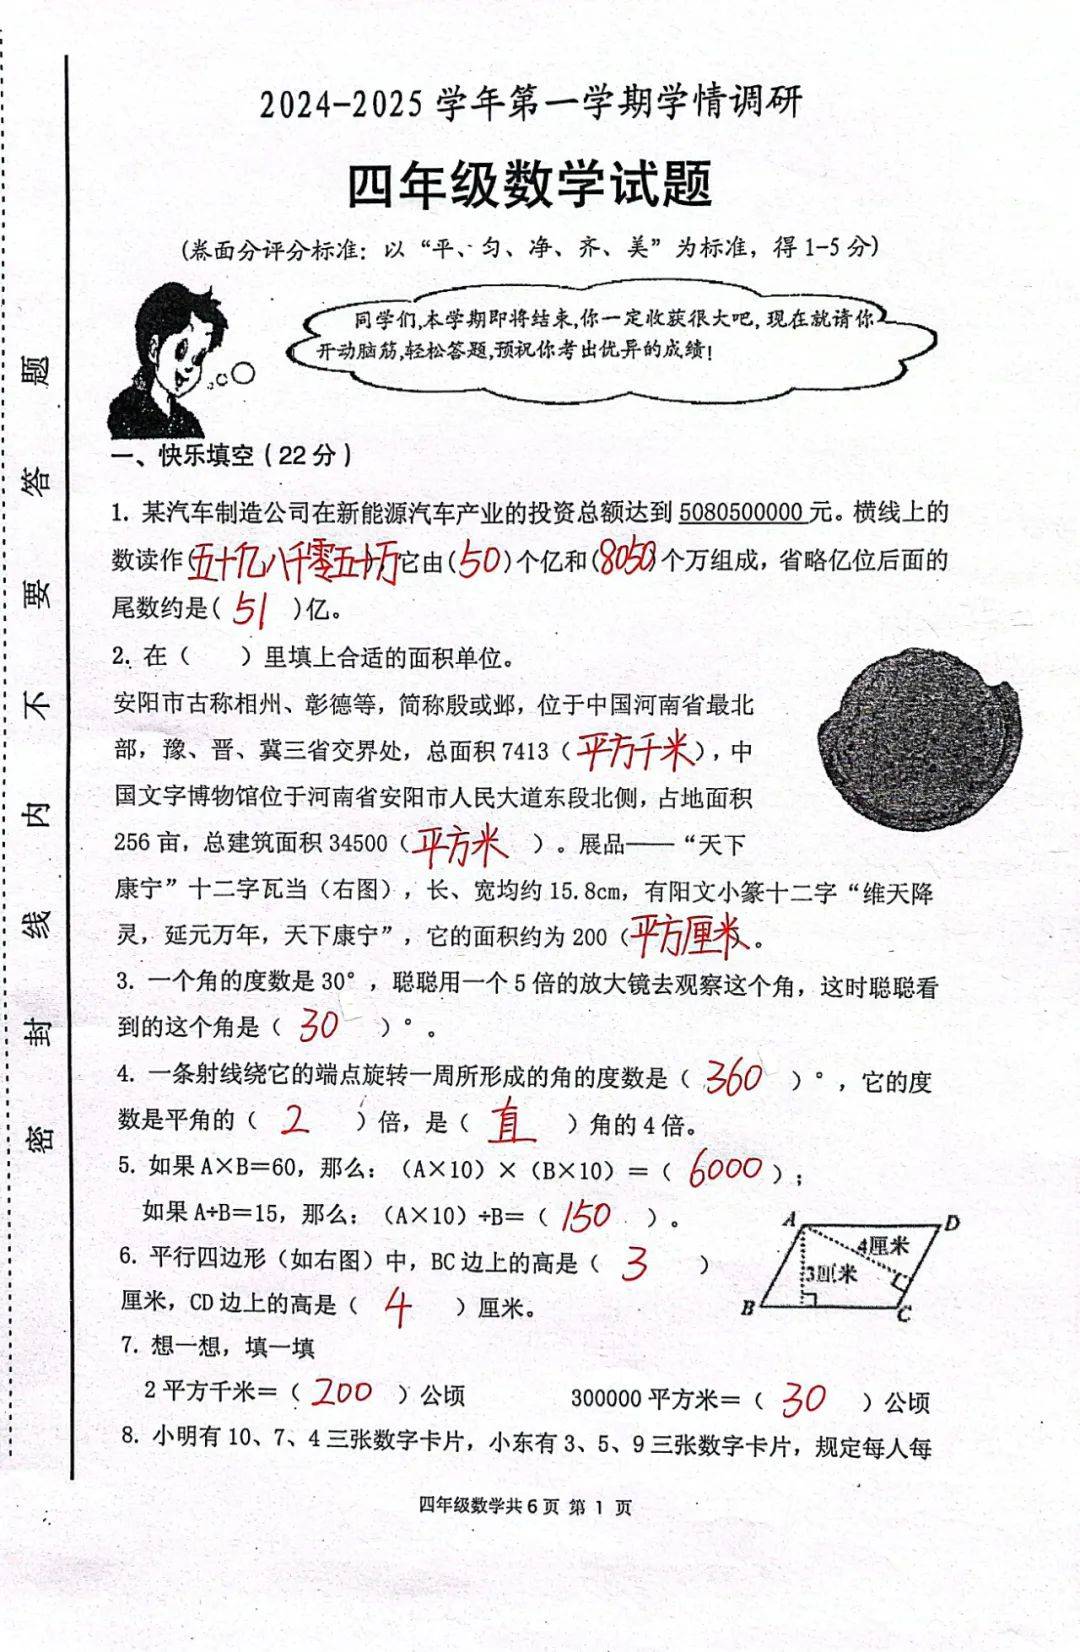 2024-2025 学年第一学期学情调研
四年级数学试题
(卷面分评分标准：以“平、匀、净、齐、美”为标准，得 1-5 分)
同学们,本学期即将结束,你一定收获很大吧,现在就请你
开动脑筋,轻松答题,预祝你考出优异的成绩!
一、快乐填空（22 分）
1. 某汽车制造公司在新能源汽车产业的投资总额达到 5080500000 元。横线上的
数读作(五十亿八千零五十万),它由(50)个亿和(8050)个万组成，省略亿位后面的
尾数约是( 51 )亿。
2. 在（ ）里填上合适的面积单位。
安阳市古称相州、彰德等，简称殷或邺，位于中国河南省最北
部，豫、晋、冀三省交界处，总面积 7413（平方千米），中
国文字博物馆位于河南省安阳市人民大道东段北侧，占地面积
256 亩，总建筑面积 34500（平方米 ）。展品——“天下
康宁”十二字瓦当（右图），长、宽均约 15.8cm，有阳文小篆十二字“维天降
灵，延元万年，天下康宁”，它的面积约为 200（平方厘米。
3. 一个角的度数是 30°，聪聪用一个 5 倍的放大镜去观察这个角，这时聪聪看
到的这个角是（ 30 ）°。
4. 一条射线绕它的端点旋转一周所形成的角的度数是（ 360 ）°，它的度
数是平角的（ 2 ）倍，是（ 直 ）角的 4 倍。
5. 如果 A×B＝60，那么：（A×10）×（B×10）＝（ 6000 ）；
如果 A÷B＝15，那么：（A×10）÷B＝（ 150 ）。
6. 平行四边形（如右图）中，BC 边上的高是（ 3 ）
厘米，CD 边上的高是（ 4 ）厘米。
A D
4厘米
3厘米
B C
7. 想一想，填一填
2 平方千米＝（ 200 ）公顷 300000 平方米＝（ 30 ）公顷
8. 小明有 10、7、4 三张数字卡片，小东有 3、5、9 三张数字卡片，规定每人每
四年级数学共 6 页 第 1 页
密 封 线 内 不 要 答 题